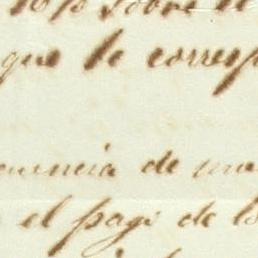 10 p% sobre el
que le corresp
uencia de ma
el pago de lo